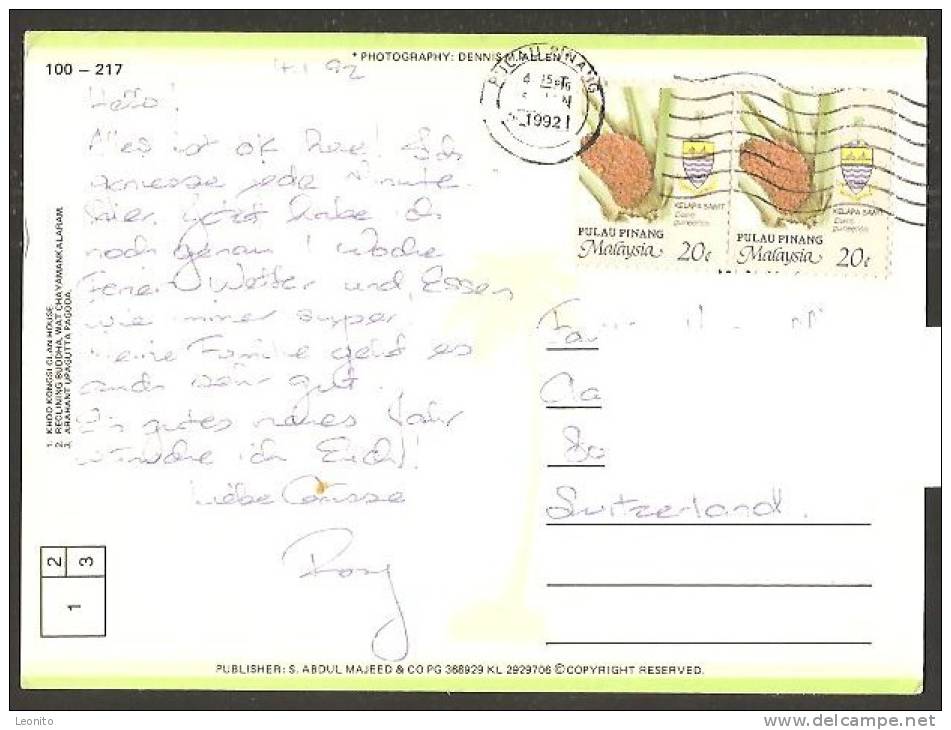 * PHOTOGRAPHY: DENNIS M. ALLEN
100 – 217
4.1.92
Hello!
Alles ist ok hier! Ich
geniesse jede Minute.
Hier. Jetzt habe ich
noch genau 1 Woche
Ferien. Wetter und Essen
wie immer super.
Meine Familie geht es
auch sehr gut.
Ein gutes neues Jahr
wünsche ich Euch!
Liebe Grüsse
Rosy
1. KHOO KONGSI CLAN HOUSE.
2. RECLINING BUDDHA, WAT CHAYAMANKALARAM.
3. ARAHANT UPAGUTTA PAGODA.
2 3
1
PULAU PINANG
4
1992
KELAPA SAWIT
Elaeis guineensis
PULAU PINANG
Malaysia 20¢
KELAPA SAWIT
Elaeis guineensis
PULAU PINANG
Malaysia 20¢
Switzerland.
PUBLISHER: S. ABDUL MAJEED & CO PG 368929 KL 2929706 ©COPYRIGHT RESERVED.
Leonito
www.delcampe.net